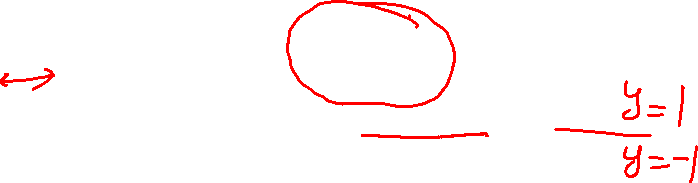 y=1
y=-1